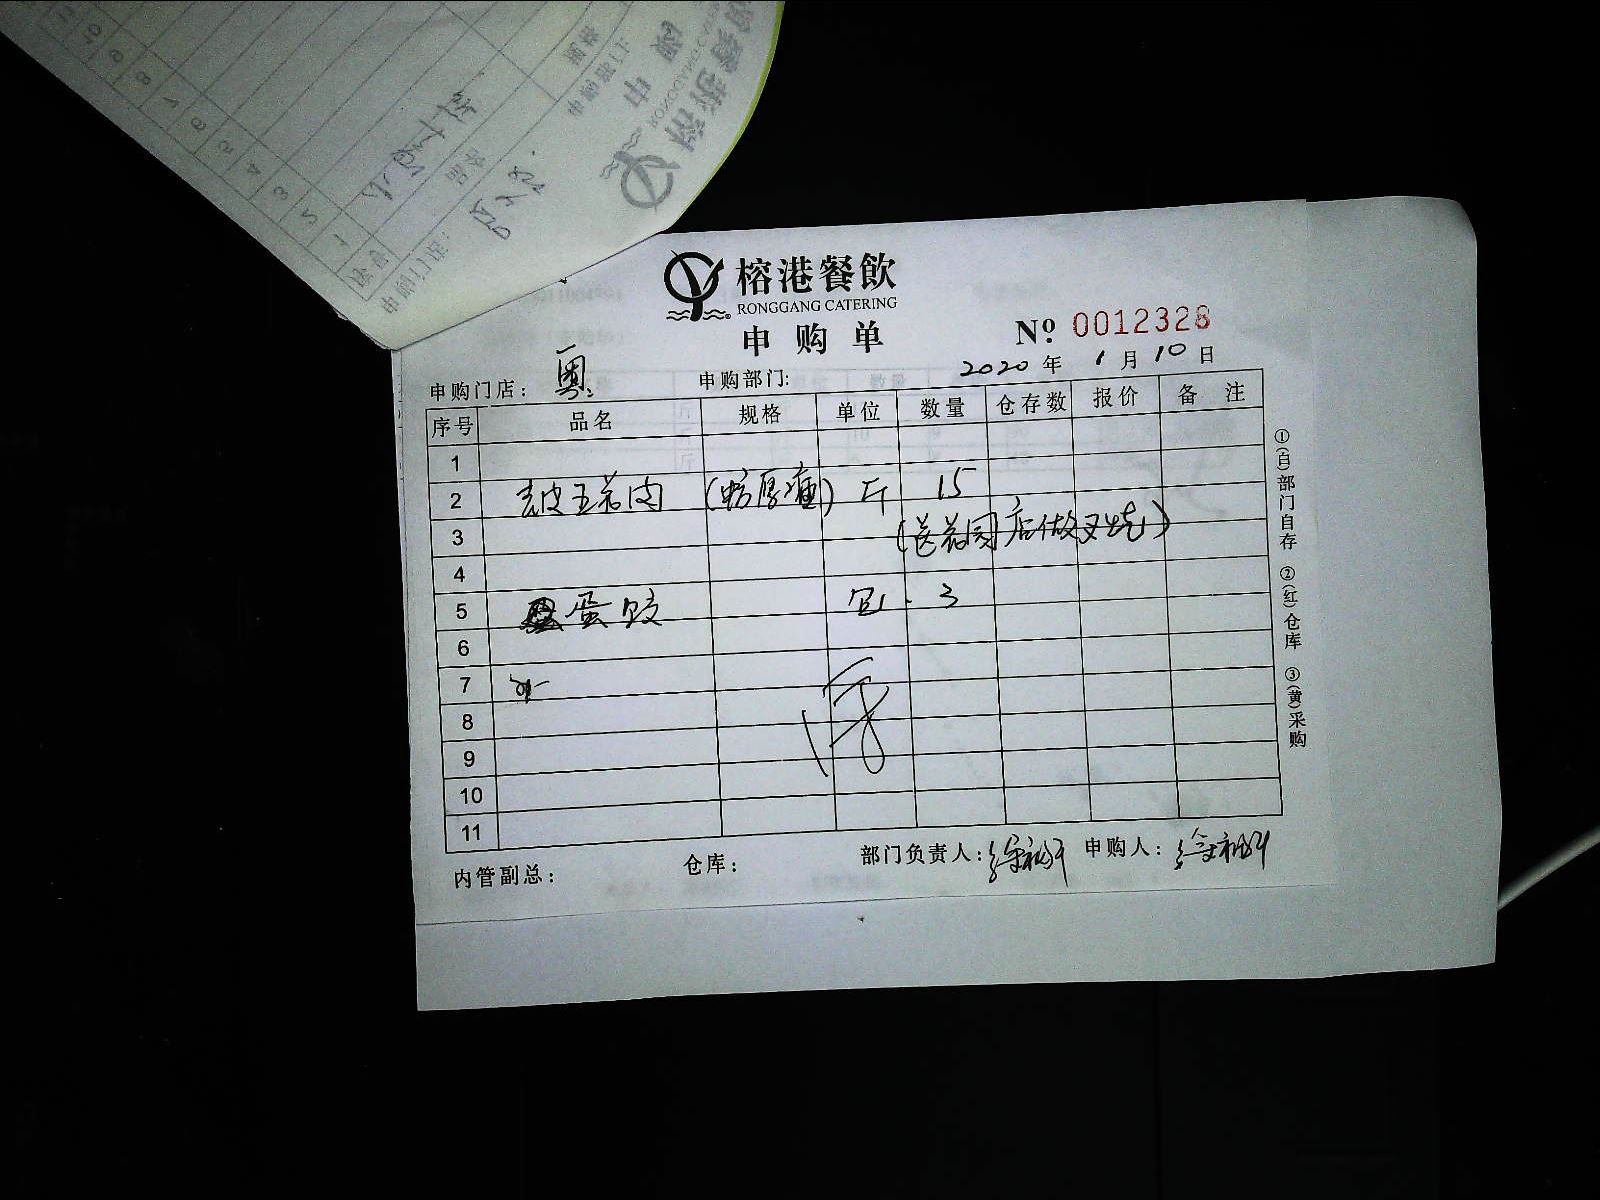 榕港餐飲
RONGGANG CATERING
申购单
№ 0012328
2020 年 1 月 10 日
申购门店： 奥 申购部门:
序号 品名 规格 单位 数量 仓存数 报价 备注
1
2 去皮五花肉 斤 15
3 (送花园店做叉烧)
4
5 蛋饺 包 3
6
7
8
9
10
11
内管副总： 仓库： 部门负责人： 申购人：
①(白)部门自存 ②(红)仓库 ③(黄)采购